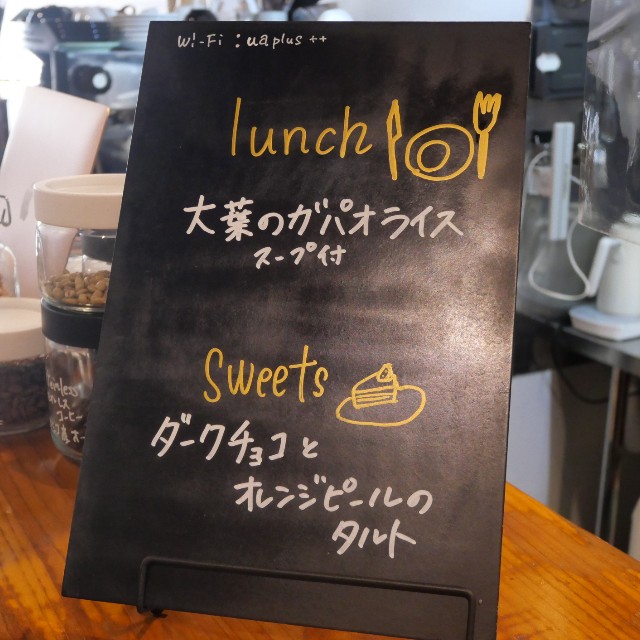 Wi-Fi : uaplus ++
lunch
大葉のガパオライス
スープ付
Sweets
ダークチョコと
オレンジピールの
タルト